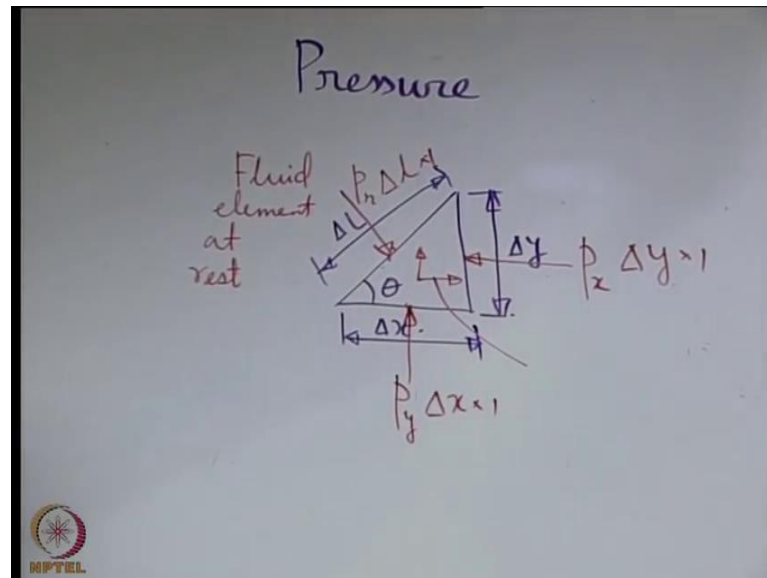 Pressure
Fluid
element
at
rest
Pn Δl×1
Δl
θ
Δy
Px Δy×1
Δx.
Py Δx×1
NPTEL